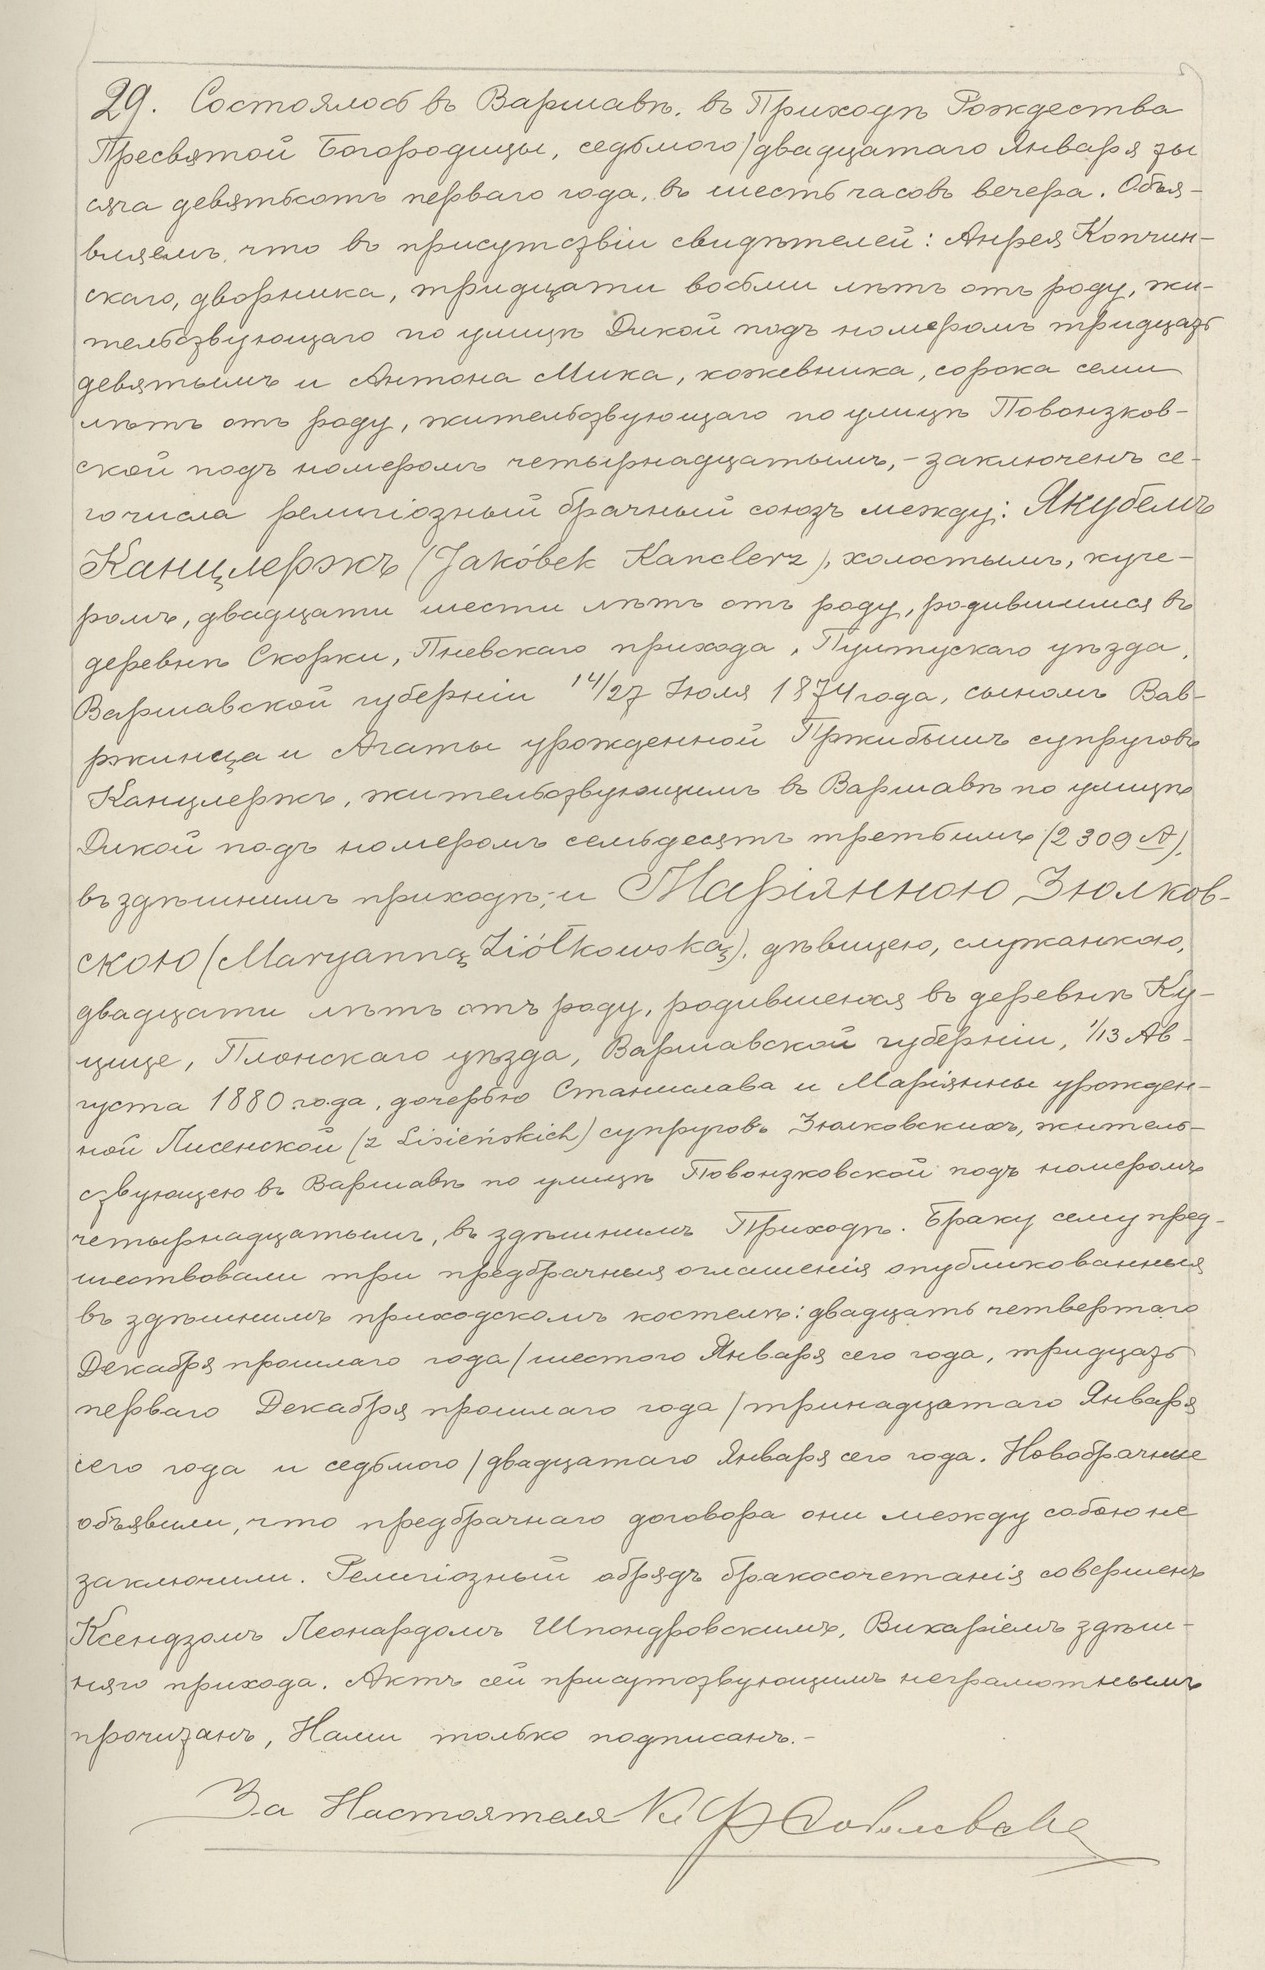 29. Состоялось въ Варшавѣ, въ Приходѣ Рождества
Пресвятой Богородицы, седьмого/двадцатаго Января ты
сяча девятьсотъ перваго года, въ шесть часовъ вечера. Объя-
вляемъ, что въ присутствіи свидѣтелей: Анрея Копчин-
скаго, дворника, тридцати восьми лѣтъ отъ роду, жи-
тельствующаго по улицѣ Дикой подъ номеромъ тридцать
девятымъ и Антона Мика, кожевника, сорока семи
лѣтъ отъ роду, жительствующаго по улицѣ Повонзков-
ской подъ номеромъ четырнадцатымъ, – заключенъ се-
го числа религіозный брачный союзъ между: Якубемъ
Канцлержъ (Jakóbek Kanclerz), холостымъ, куче-
ромъ, двадцати шести лѣтъ отъ роду, родившимся въ
деревнѣ Скорки, Пневскаго прихода, Пултускаго уѣзда,
Варшавской губерніи 14/27 Іюля 1874 года, сыномъ Вав-
ржинца и Агаты урожденной Пржибышъ супруговъ
Канцлержъ, жительствующимъ въ Варшавѣ по улицѣ
Дикой подъ номеромъ семьдесятъ третьимъ (2309 А),
въ здѣшнимъ приходѣ; и Маріянною Зюлков-
скою (Maryanną Ziółkowską), дѣвицею, служанкою,
двадцати лѣтъ отъ роду, родившеюся въ деревнѣ Ку-
цице, Плонскаго уѣзда, Варшавской губерніи, 1/13 Ав-
густа 1880 года, дочерью Станислава и Маріянны урожден-
ной Лисенской (z Lisieńskich) супруговъ Зюлковскихъ, житель-
ствующею въ Варшавѣ по улицѣ Повонзковской подъ номеромъ
четырнадцатымъ, въ здѣшнимъ Приходѣ. Браку сему пред-
шествовали три предбрачныя оглашенія опубликованныя
въ здѣшнимъ приходскомъ костелѣ: двадцать четвертаго
Декабря прошлаго года/шестого Января сего года, тридцать
перваго Декабря прошлаго года/тринадцатаго Января
сего года и седьмого/двадцатаго Января сего года. Новобрачные
объявили, что предбрачнаго договора они между собою не
заключили. Религіозный обрядъ бракосочетанія совершенъ
Ксендзомъ Леонардомъ Шпондровскимъ, Викаріемъ здѣш-
няго прихода. Актъ сей присутствующимъ неграмотнымъ
прочитанъ, Нами только подписанъ. –
За Настоятеля